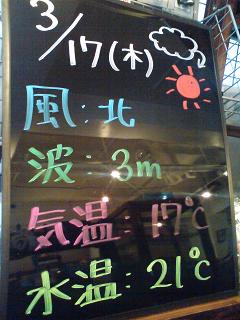 3/17(木)
風:北
波:3m
気温:17℃
水温:21℃